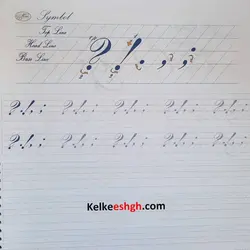 Symbol
Top Line
Head Line
Base Line
? ! . , ;
? ! . , ; ? ! . , ; ? ! . , ; ? ! . , ; ? ! . , ;
? ! . , ; ? ! . , ; ? ! . , ; ? ! . , ; ? ! . , ;
Kelkeeshgh.com